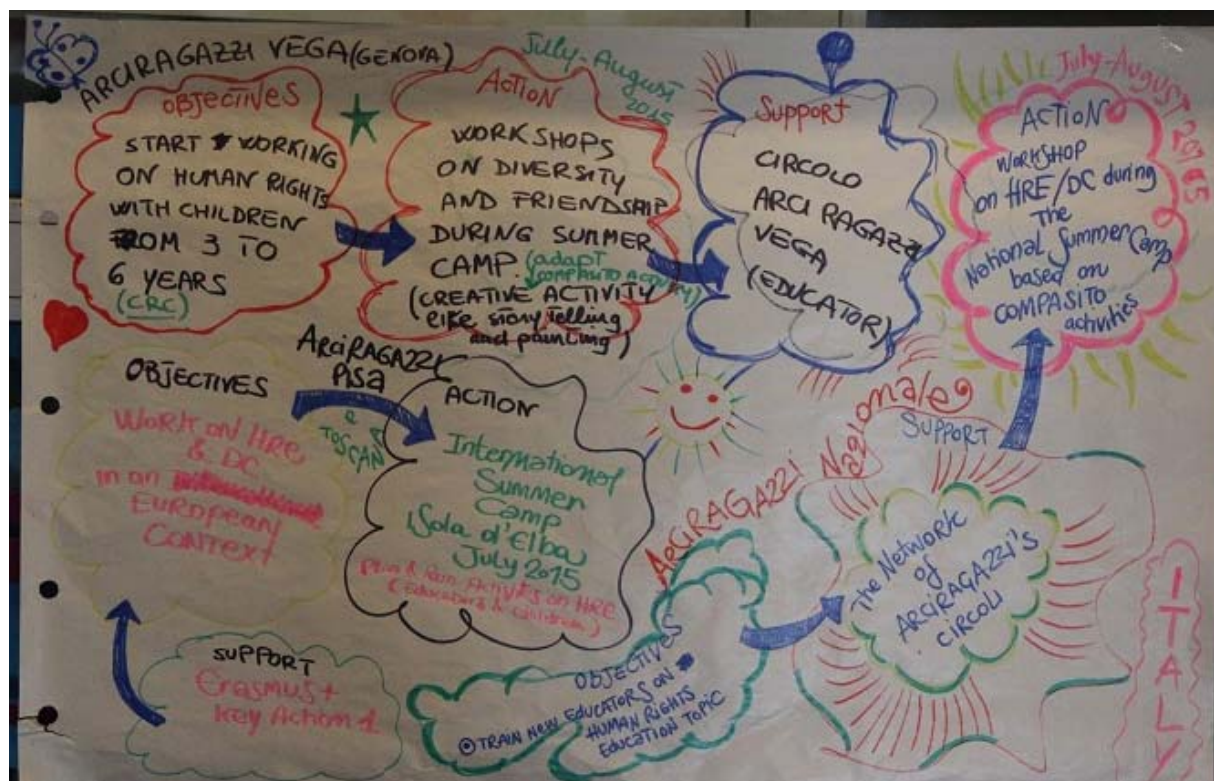 ARCIRAGAZZI VEGA (GENOVA)
OBJECTIVES
START WORKING
ON HUMAN RIGHTS
WITH CHILDREN
FROM 3 TO
6 YEARS
(CRC)
July-August
2015
ACTION
WORKSHOPS
ON DIVERSITY
AND FRIENDSHIP
DURING SUMMER
CAMP. (adapt
COMPASITO ACTIVITY)
(CREATIVE ACTIVITY
like story telling
and painting)
Support
CIRCOLO
ARCI RAGAZZI
VEGA
(EDUCATOR)
July-August 2015
ACTION
WORKSHOP
on HRE/DC during
The
National Summer Camp
based on
COMPASITO
activities
ArciRAGAZZI
PISA
&
TOSCAN
OBJECTIVES
Work on HRE
& DC
in an
European
Context
ACTION
International
Summer
Camp
Isola d'Elba
July 2015
Plan & Run Activities on HRE
(Educators & children)
SUPPORT
Erasmus+
Key Action 1
ArciRAGAZZI Nazionale
OBJECTIVES
TRAIN NEW EDUCATORS ON
HUMAN RIGHTS
EDUCATION TOPIC
SUPPORT
The Network
of
ARCIRAGAZZI's
CIRCOLI
ITALY